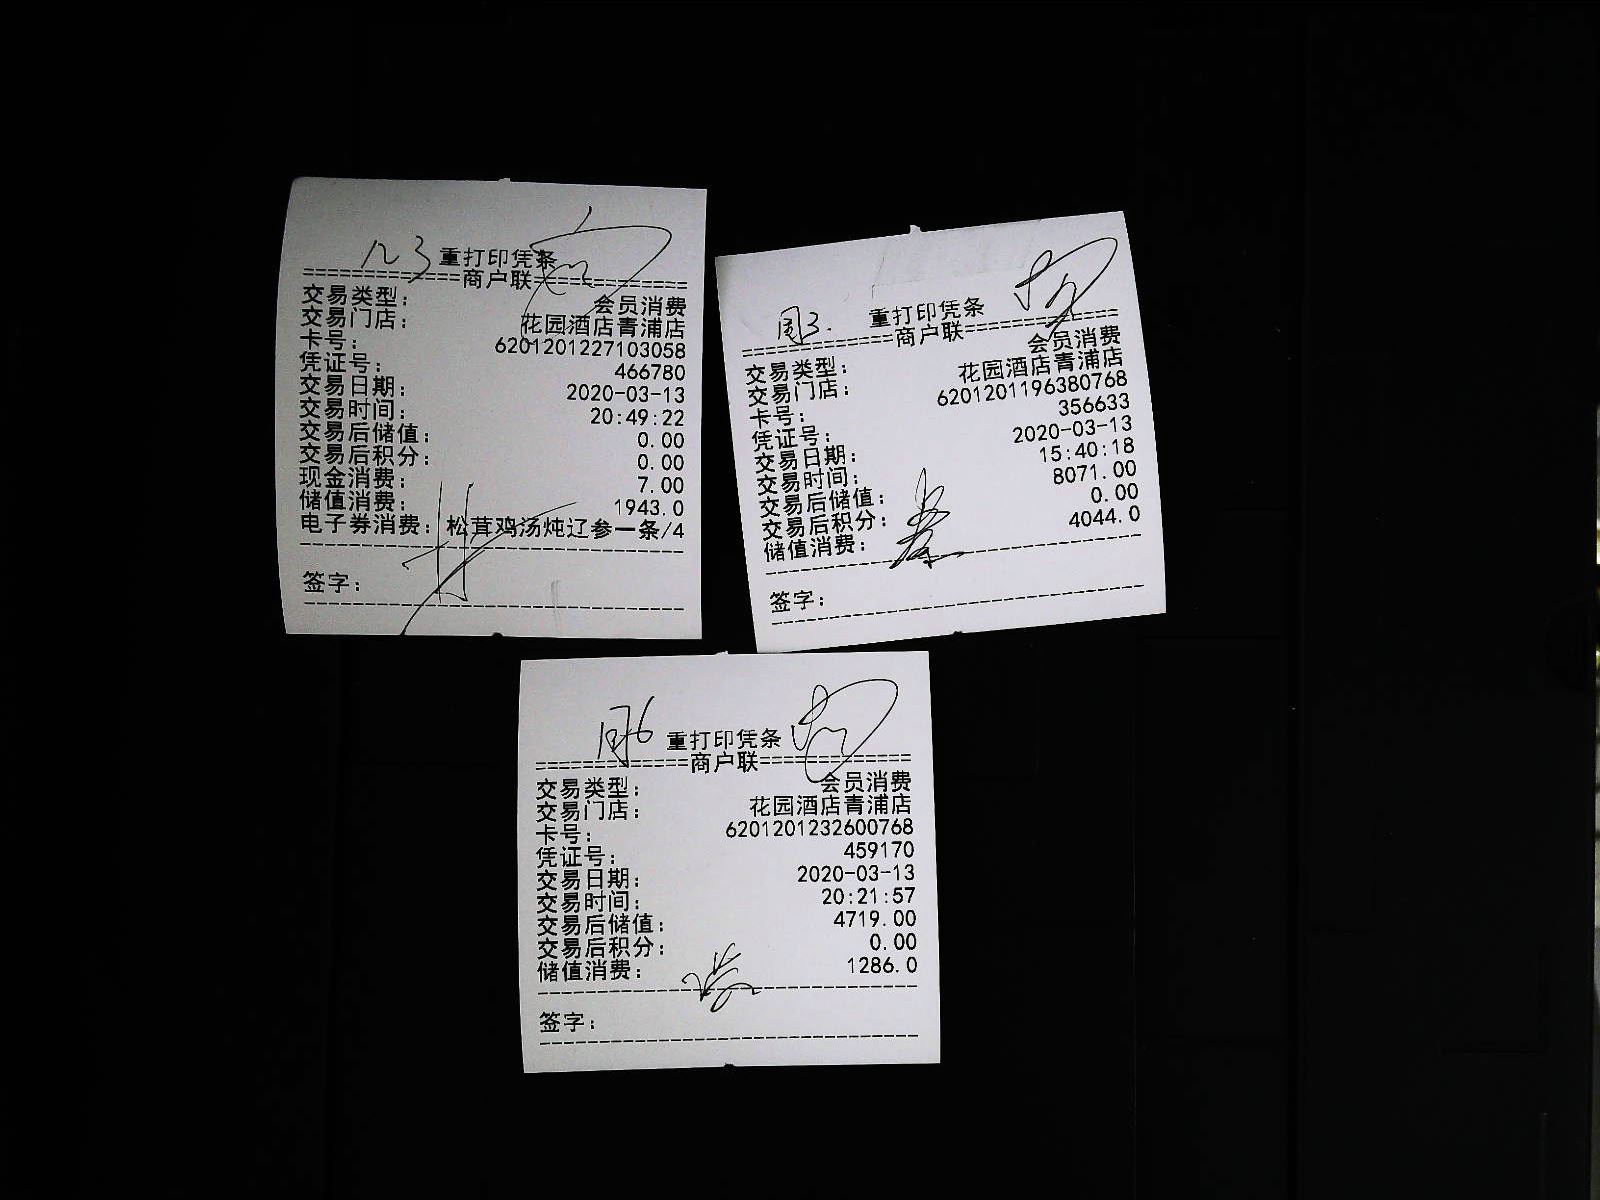 重打印凭条
============商户联============
交易类型： 会员消费
交易门店： 花园酒店青浦店
卡号： 6201201227103058
凭证号： 466780
交易日期： 2020-03-13
交易时间： 20:49:22
交易后储值： 0.00
交易后积分： 0.00
现金消费： 7.00
储值消费： 1943.0
电子券消费：松茸鸡汤炖辽参一条/4
签字：
周3. 重打印凭条
============商户联============
交易类型： 会员消费
交易门店： 花园酒店青浦店
卡号： 6201201196380768
凭证号： 356633
交易日期： 2020-03-13
交易时间： 15:40:18
交易后储值： 8071.00
交易后积分： 0.00
储值消费： 4044.0
签字：
重打印凭条
============商户联============
交易类型： 会员消费
交易门店： 花园酒店青浦店
卡号： 6201201232600768
凭证号： 459170
交易日期： 2020-03-13
交易时间： 20:21:57
交易后储值： 4719.00
交易后积分： 0.00
储值消费： 1286.0
签字：